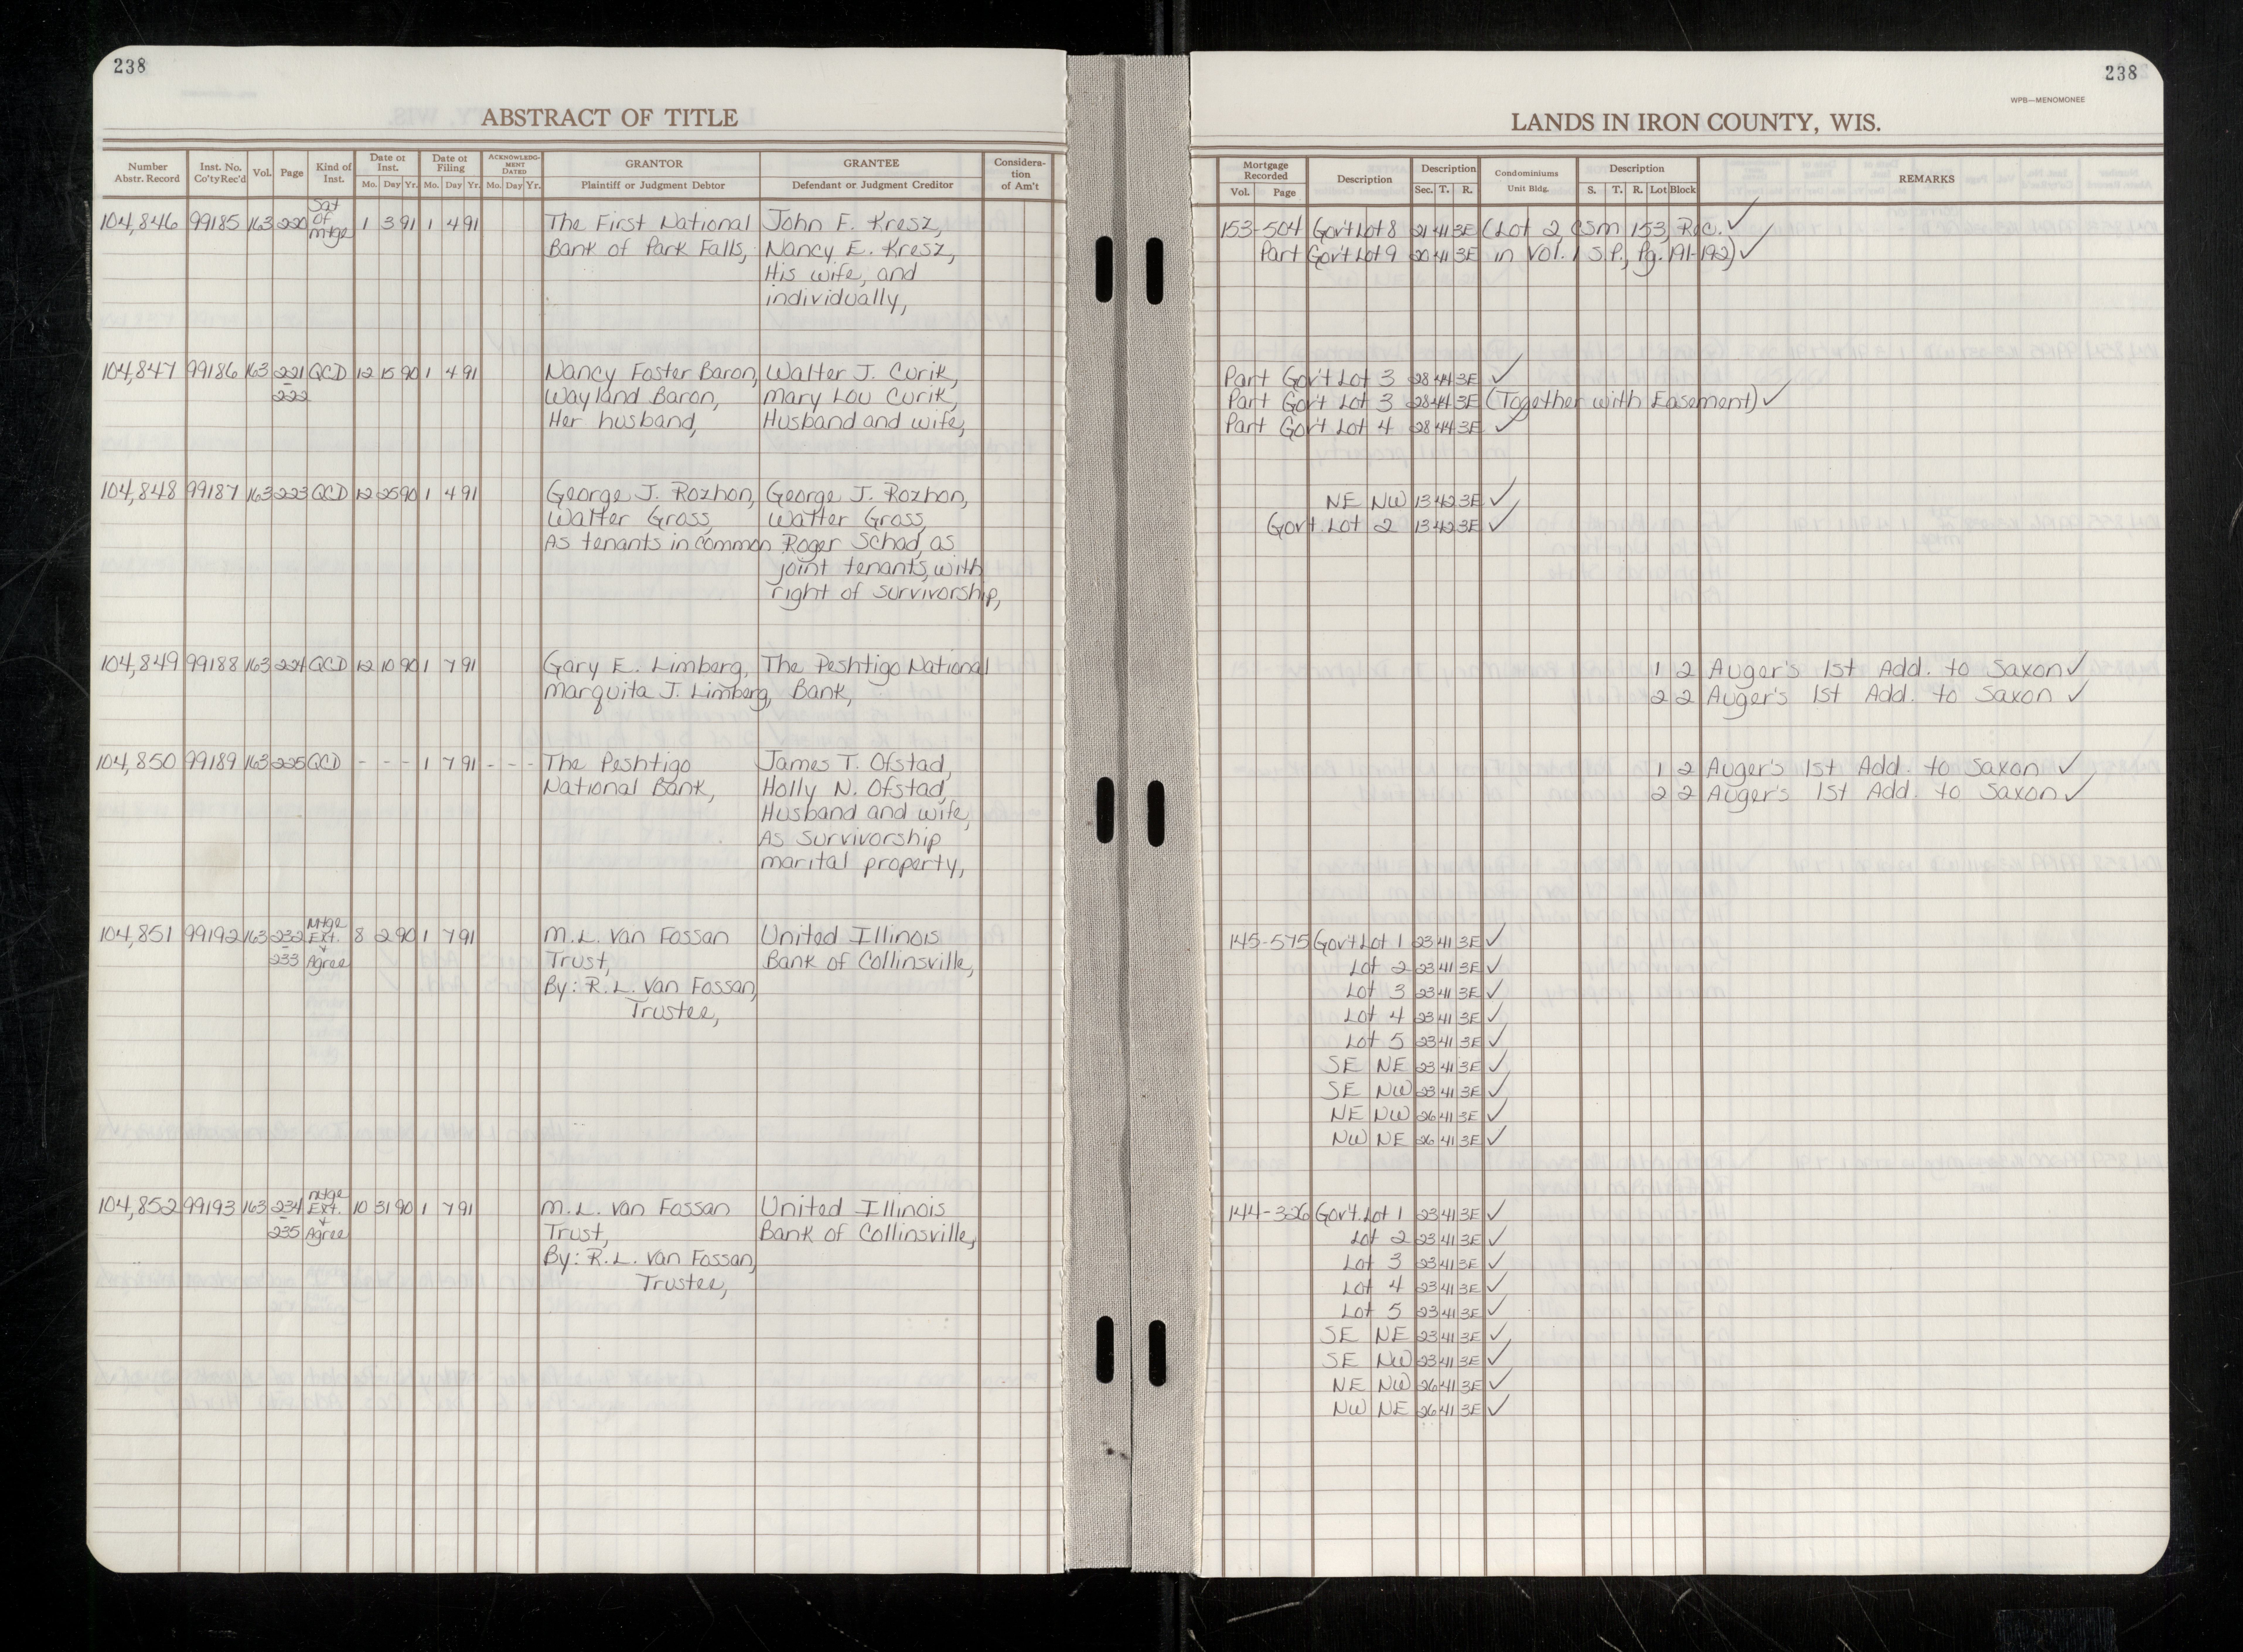 238
ABSTRACT OF TITLE
Number Abstr. Record Inst. No. Co'ty Rec'd Vol. Page Kind of Inst. Date of Inst. Mo. Day Yr. Date of Filing Mo. Day Yr. ACKNOWLEDGMENT DATED Mo. Day Yr. GRANTOR Plaintiff or Judgment Debtor GRANTEE Defendant or Judgment Creditor Consideration of Am't
104,846 99185 163 220 Sat of Mtge 1 3 91 1 4 91 The First National John F. Kresz,
Bank of Park Falls, Nancy E. Kresz,
His wife, and
individually,
104,847 99186 163 221- QCD 12 15 90 1 4 91 Nancy Foster Baron, Walter J. Curik,
222 Wayland Baron, Mary Lou Curik,
Her husband, Husband and wife,
104,848 99187 163 223 QCD 12 25 90 1 4 91 George J. Rozhon, George J. Rozhon,
Walter Gross, Walter Gross,
As tenants in common Roger Schad, as
joint tenants, with
right of survivorship,
104,849 99188 163 224 QCD 12 10 90 1 7 91 Gary E. Limberg, The Peshtigo National
Marquita J. Limberg, Bank,
104,850 99189 163 225 QCD - - - 1 7 91 - - - The Peshtigo James T. Ofstad,
National Bank, Holly N. Ofstad,
Husband and wife,
As Survivorship
marital property,
104,851 99192 163 232- Mtge Ext. + 8 2 90 1 7 91 M.L. Van Fossan United Illinois
233 Agree Trust, Bank of Collinsville,
By: R.L. Van Fossan,
Trustee,
104,852 99193 163 234- Mtge Ext. + 10 31 90 1 7 91 M.L. Van Fossan United Illinois
235 Agree Trust, Bank of Collinsville,
By: R.L. Van Fossan,
Trustee,
238
WPB—MENOMONEE
LANDS IN IRON COUNTY, WIS.
Mortgage Recorded Vol. Page Description Description Sec. T. R. Condominiums Unit Bldg. Description S. T. R. Lot Block REMARKS
153-504 Gov't Lot 8 21 41 3E (Lot 2 CSM 153, Rec. ✓
Part Gov't Lot 9 20 41 3E in Vol. 1 S.P., Pg. 191-192) ✓
Part Gov't Lot 3 28 44 3E ✓
Part Gov't Lot 3 28 44 3E (Together with Easement) ✓
Part Gov't Lot 4 28 44 3E ✓
NE NW 13 42 3E ✓
Gov't. Lot 2 13 42 3E ✓
1 2 Auger's 1st Add. to Saxon ✓
2 2 Auger's 1st Add. to Saxon ✓
1 2 Auger's 1st Add. to Saxon ✓
2 2 Auger's 1st Add. to Saxon ✓
145-575 Gov't Lot 1 23 41 3E ✓
Lot 2 23 41 3E ✓
Lot 3 23 41 3E ✓
Lot 4 23 41 3E ✓
Lot 5 23 41 3E ✓
SE NE 23 41 3E ✓
SE NW 23 41 3E ✓
NE NW 26 41 3E ✓
NW NE 26 41 3E ✓
144-326 Gov't. Lot 1 23 41 3E ✓
Lot 2 23 41 3E ✓
Lot 3 23 41 3E ✓
Lot 4 23 41 3E ✓
Lot 5 23 41 3E ✓
SE NE 23 41 3E ✓
SE NW 23 41 3E ✓
NE NW 26 41 3E ✓
NW NE 26 41 3E ✓